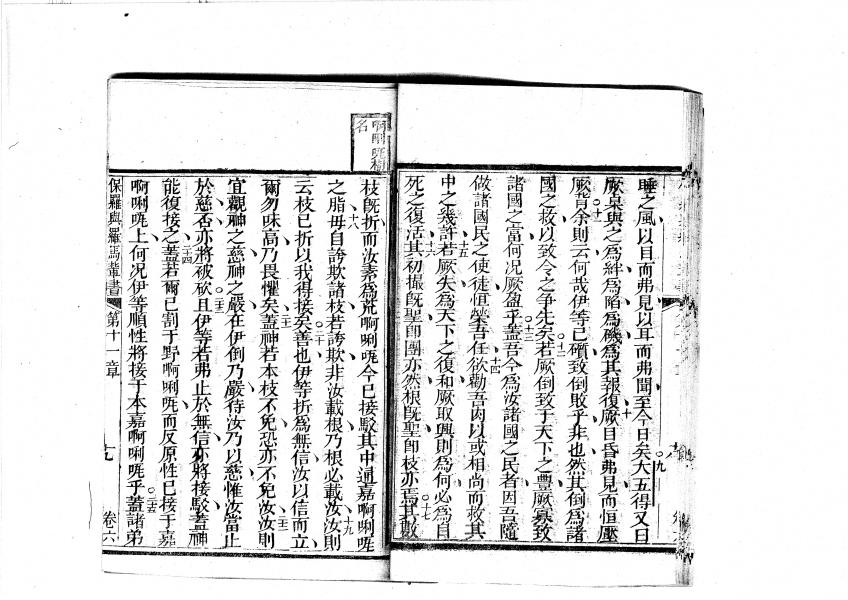 睡之風以目而弗見以耳而弗聞至今日矣大五得又曰
厥桌與之為絆為陷為磯為其報復厥目昏弗見而恒壓
厥背余則云何哉伊等已磧致倒敗乎非也然其倒為諸
國之救以致令之争先矣若厥倒致于天下之豐厥衰致
諸國之富何况厥盈乎蓋吾今為汝諸國之民者因吾隨
做諸國民之使徒恒榮吾任欲勸吾肉以或相尚而救其
中之幾許若厥失為天下之復和厥取興則為何必為自
死之復活其初撮既聖即團亦然根既聖即枝亦焉其數
啊唎㕭樹
名
枝既折而汝素為荒啊唎㕭今已接駁其中通嘉啊唎㕭
之脂毋自誇欺諸枝若誇欺非汝載根乃根必載汝汝則
云枝已折以我得接矣善也伊等折為無信汝以信而立
爾勿味高乃畏懼矣蓋神若本枝不免恐亦不免汝汝則
宜觀神之慈神之嚴在伊倒乃嚴待汝乃以慈惟汝當止
於慈否亦將被砍且伊等若弗止於無信亦將接駁蓋神
能復接之蓋若爾已割于野啊唎㕭而反原性已接于嘉
啊唎㕭上何况伊等順性將接于本嘉啊唎㕭乎蓋諸弟
保羅與羅馬輩書 第十一章 卷六